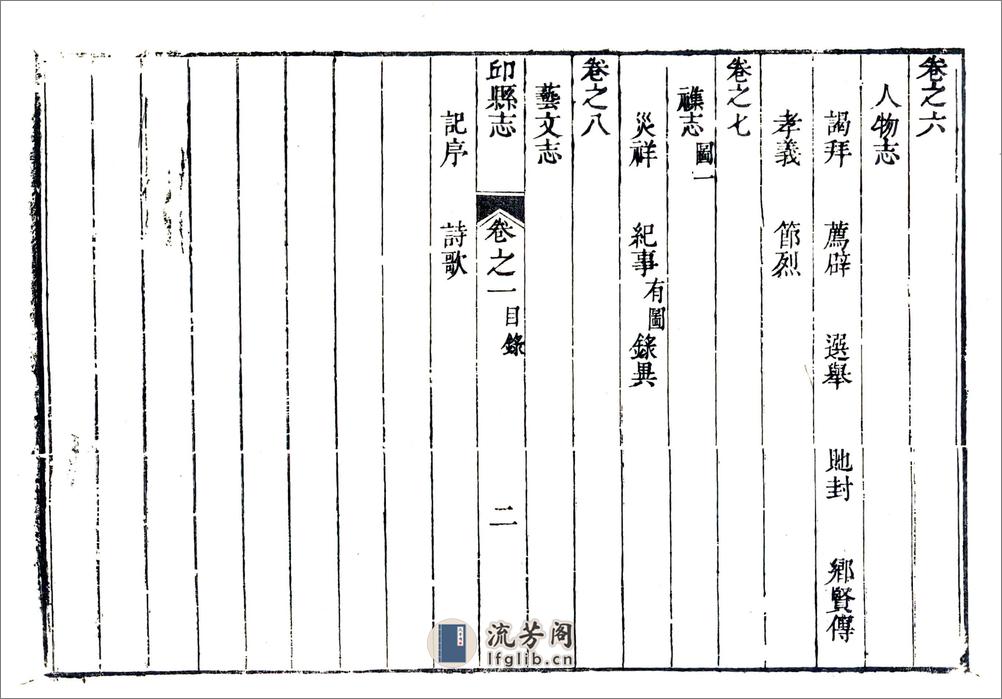 卷之六
人物志
謁拜 薦辟 選舉 貤封 鄉賢傳
孝義 節烈
卷之七
襍志 圖一
災祥 紀事 有圖 錄異
卷之八
藝文志
邱縣志 卷之一 目錄 二
記序 詩歌
流芳阁
lfglib.cn